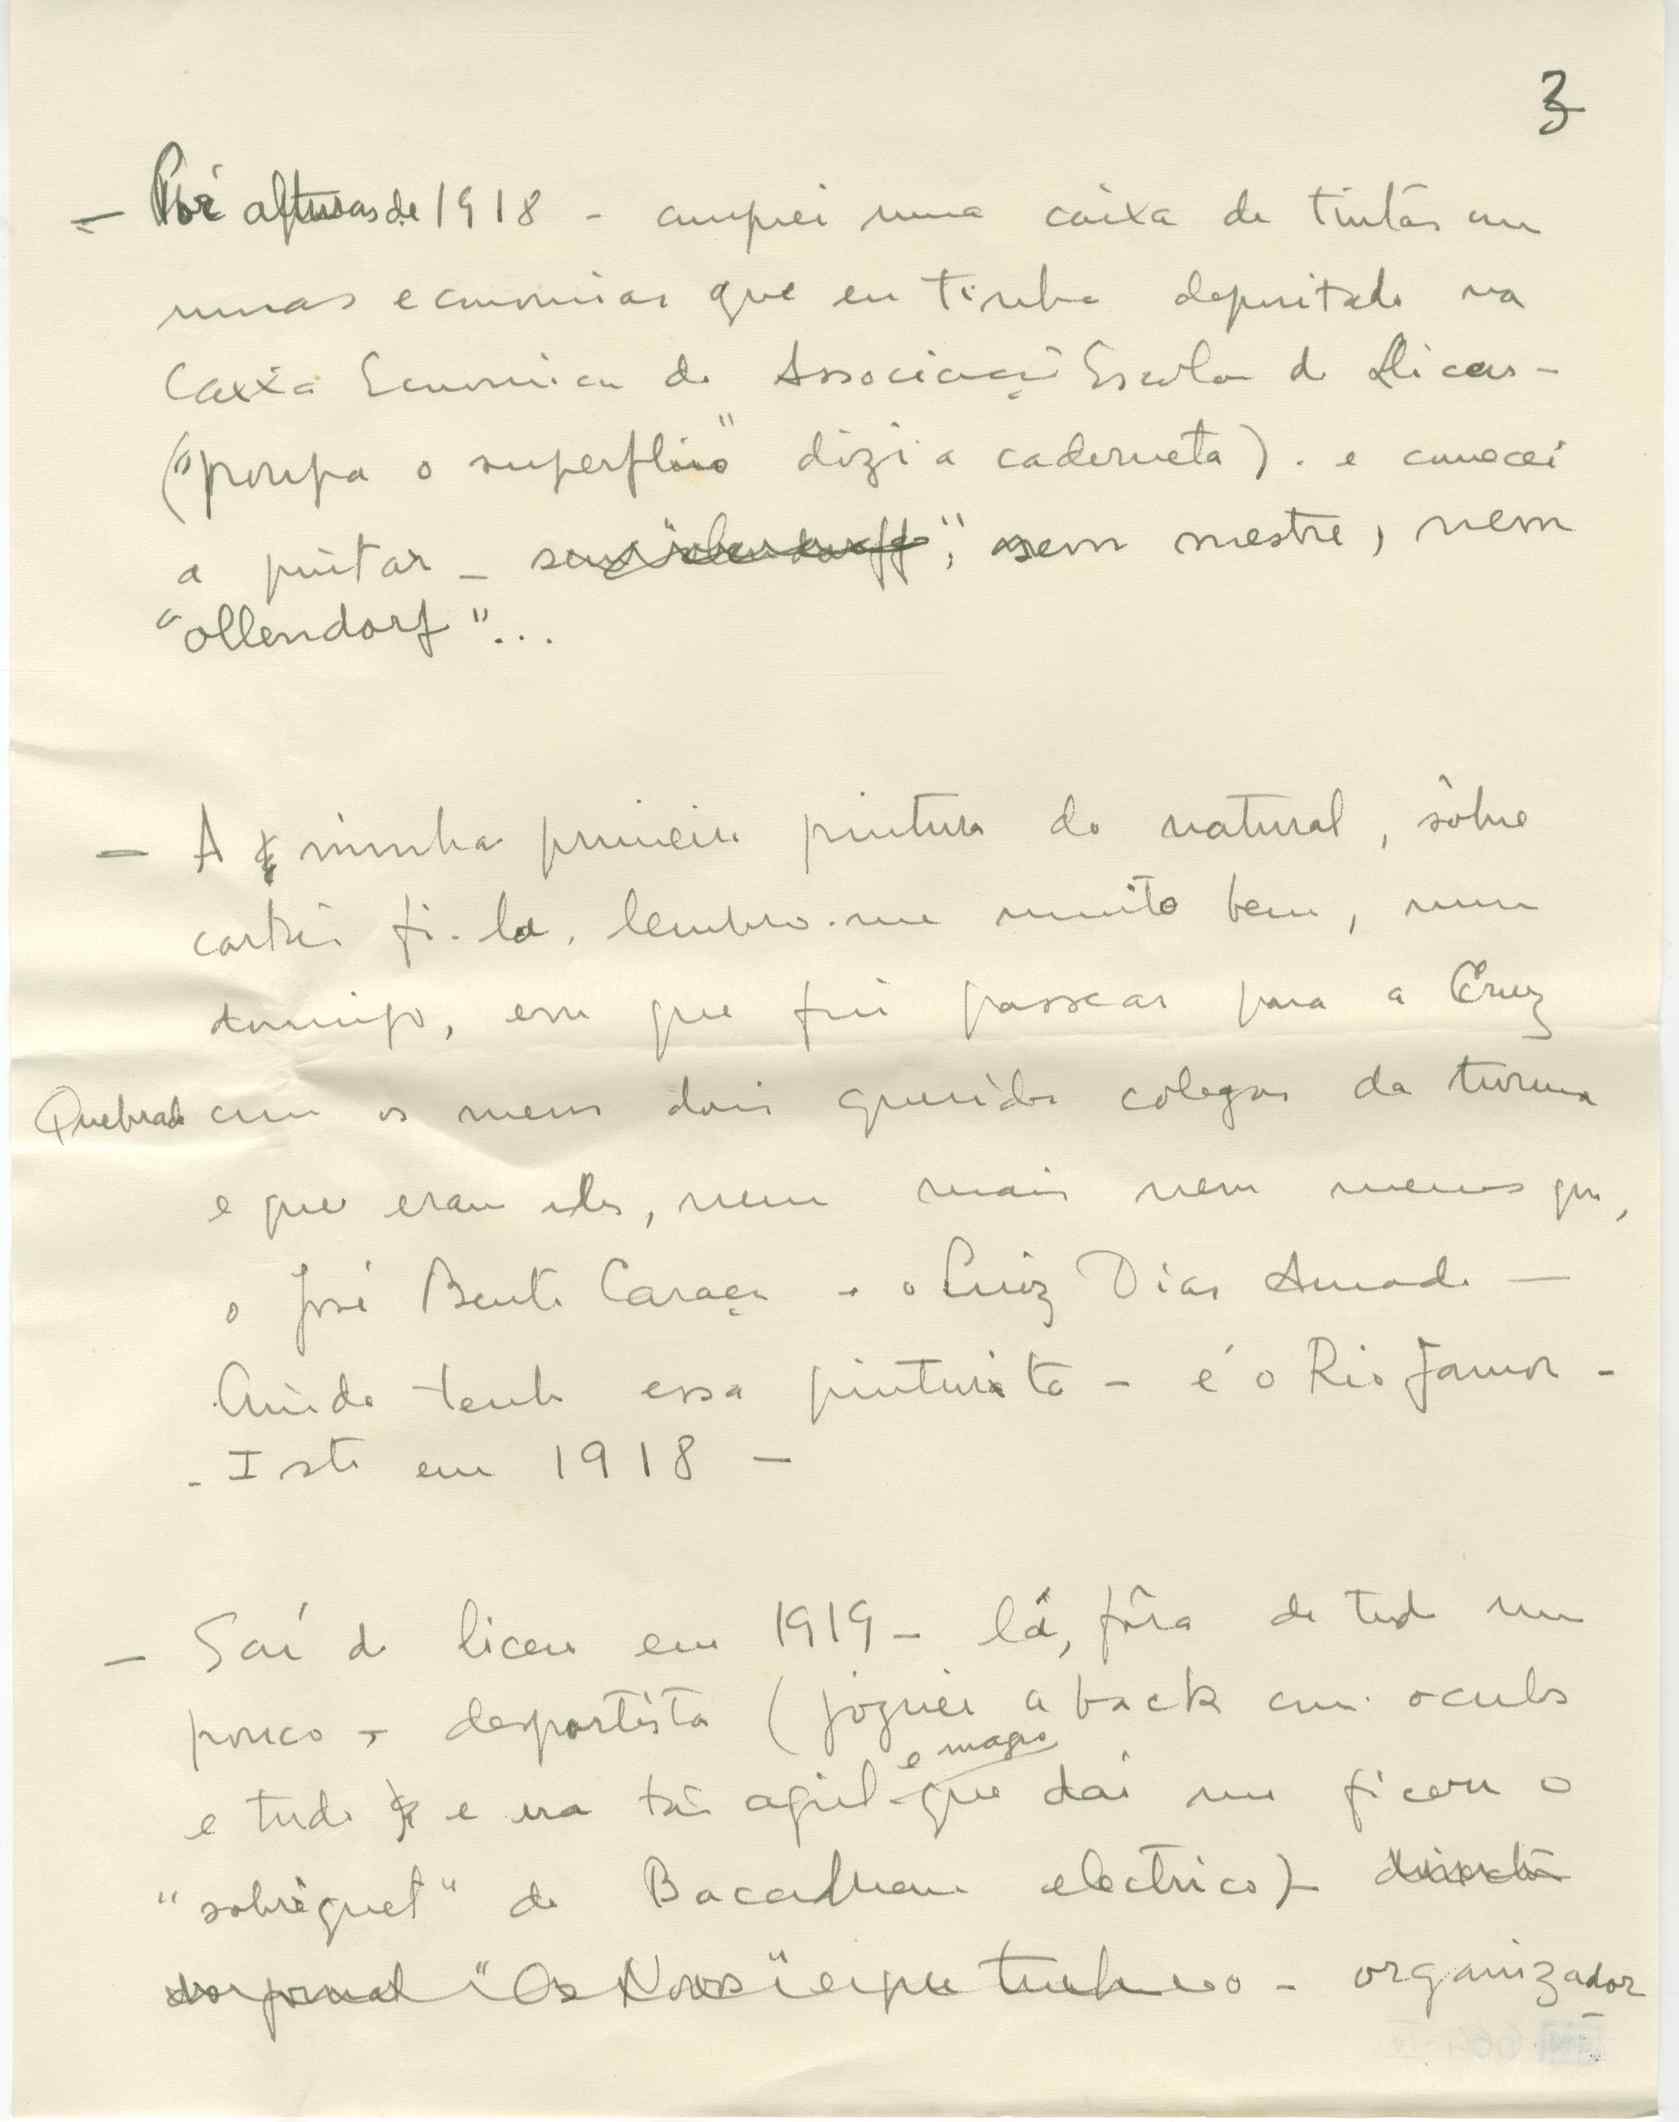 3
— Por alturas de 1918 - comprei uma caixa de tintas com
umas economias que eu tinha depositado na
Caixa Economica da Associação Escolar do Liceu -
("poupa o superfluo" dizia a caderneta). e comecei
a pintar - sem mestre, nem
"ollendorf"...
— A minha primeira pintura do natural, sôbre
cartão fi-la, lembro-me muito bem, num
domingo, em que fui passear para a Cruz
Quebrada com os meus dois queridos colegas da turma
e que eram eles, nem mais nem menos que,
o José Bento Caraça e o Luiz Dias Amado —
Ainda tenho essa pinturita - é o Rio Jamor -
- Isto em 1918 -
- Saí do liceu em 1919 - lá, fôra de tudo um
pouco - desportista (joguei a back com oculos
e magro
e tudo e era tão agil que daí me ficou o
"sobriquet" de Bacalhau electrico) - director
do jornal "Os Novos" e que - organizador